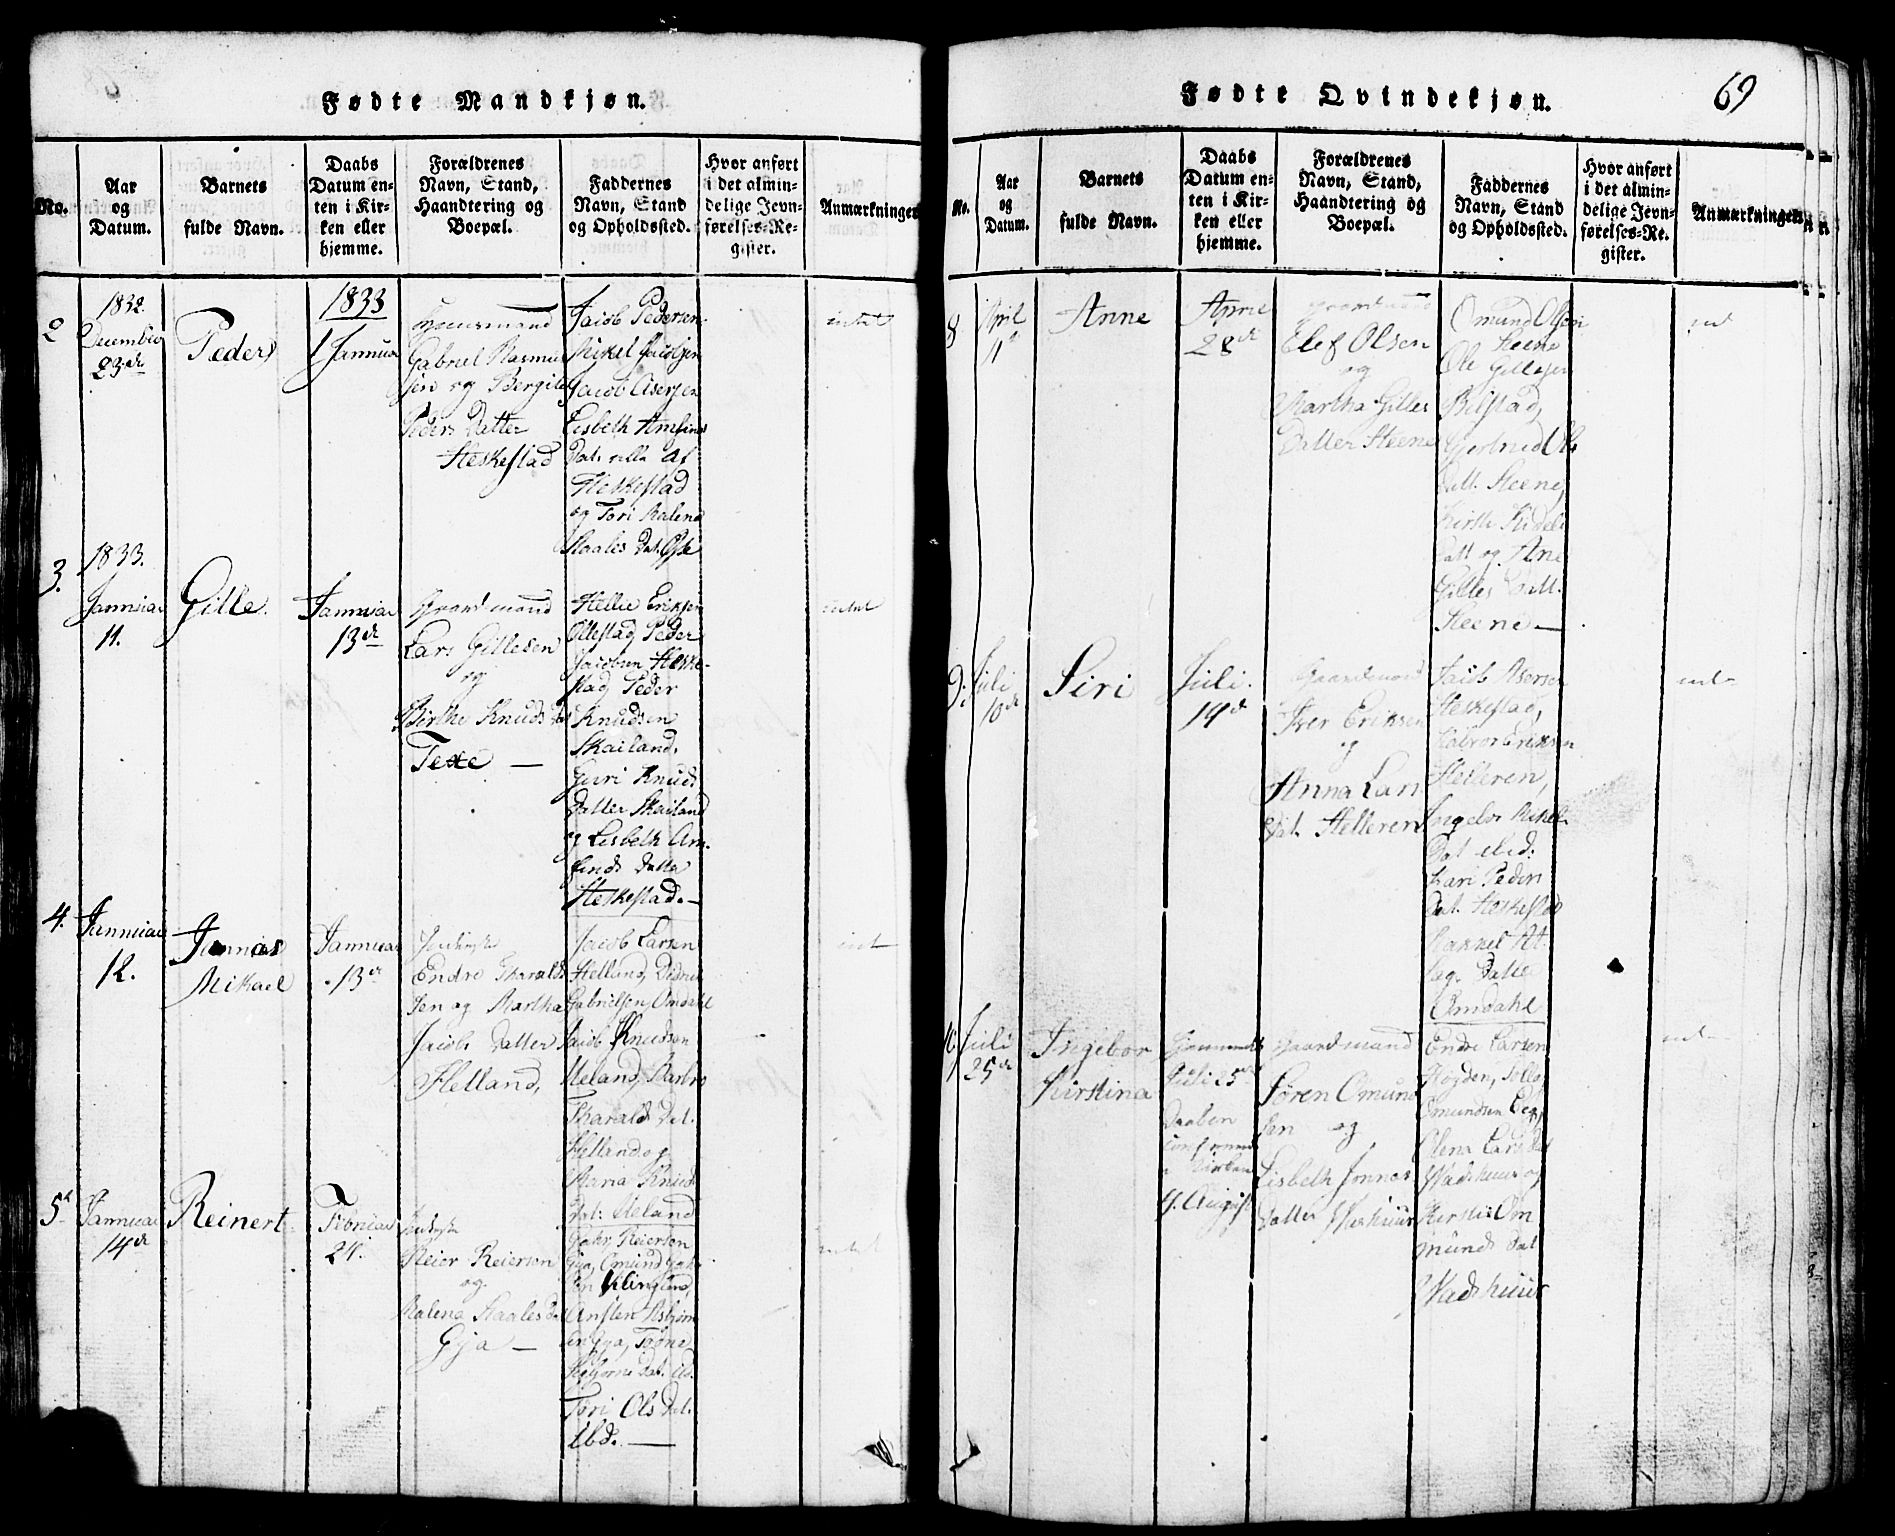 Fødte Mandkjøn.
No.
Aar
og
Datum.
Barnets
fulde Navn.
Daabs
Datum en-
ten i Kir-
ken eller
hjemme.
Forældrenes
Navn, Stand,
Haandtering og
Boepæl.
Faddernes
Navn, Stand
og Opholdssted.
Hvor anført
i det almin-
delige Jevn-
førelses-Re-
gister.
Anmærkninger
2
1832.
December
23de
Peder
1833
1 Januar
Huusmand
Gabriel Rasmus
sen og Bergite
Peders Datter
Heskestad
Jacob Pedersen
Mikel Jacobsen
Jacob Asersen
Lisbeth Amfinds
Dat. alle af
Heskestad
og Tori Malena
Staales Dat.
intet
3.
1833.
Januar
11.
Gille.
Januar
13de
Gaardmand
Lars Gillesen
og
Birthe Knuds Dat
Texe —
Hellie Eriksen
Ollestad, Peder
Jacobsen Heske-
stad, Peder
Knudsen
Skailand,
Guri Knuds
Datter Skailand
og Lisbeth Am-
finds Datter
Heskestad. —
intet
4.
Januar
12.
Jonnas
Mikael
Januar
13de
Endre Tharalds
sen og Martha
Jacobs Datter
Helland,
Jacob Larsen
Helland, Didrik
Gabrielsen Omdahl
Jacob Knudsen
Meland, Barbro
Tharalds Dat.
Helland og
Maria Knuds
Dat. Meland
int
5
Januar
14de
Reinert
Februar
24.
Reier Reiersen
og
Malena Staales Dat
Gya —
Reiersen
Gya, Omund
sen Klingland,
Ansten Asbjørn
sen Gya, Tone
Asbjørns Dat. ibd.
Tori Ols Dat.
ibd. —
intet
Fødte Qvindekjøn.
69
No.
Aar
og
Datum.
Barnets
fulde Navn.
Daabs
Datum en-
ten i Kir-
ken eller
hjemme.
Forældrenes
Navn, Stand,
Haandtering og
Boepæl.
Faddernes
Navn, Stand
og Opholdssted.
Hvor anført
i det almin-
delige Jevn-
førelses-Re-
gister.
Anmærkninger
8
April
11
Anne
April
28de
Gaardmand
Elef Olsen
og
Martha Gilles
Datter Steene
Omund Olsen
Steene
Ole Gillesen
Bilstad,
Gjertrud Ols
Datt. Steene,
Kirsti
Datt og Ane
Gilles Datt.
Steene —
int
9.
Juli
10de
Siri
Juli.
14de
Gaardmand
Iver Eriksen
og
Anna Lars
Dat. Helleren
Jacob Asersen
Heskestad,
Halvor Eriksen
Helleren,
Ingebor Mikel
Dat ibid.
Kari Peders
Dat. Heskestad
Rakkel At
lag Datter
Omdahl
int
10
Juli
25de
Ingebor
Kirstina
Hjemmedøbt
Juli 25de
Daaben
i Kirken
4. August
Gaardmand
Søren Omund
sen og
Lisbeth Jonnas
Datter Vashuus
Endre Larsen
Høgden, Tollef
Omundsen Ege,
Elena Lars Dat
Vadshuus og
Kirstie Om
munds Dat
Vadshuus
int